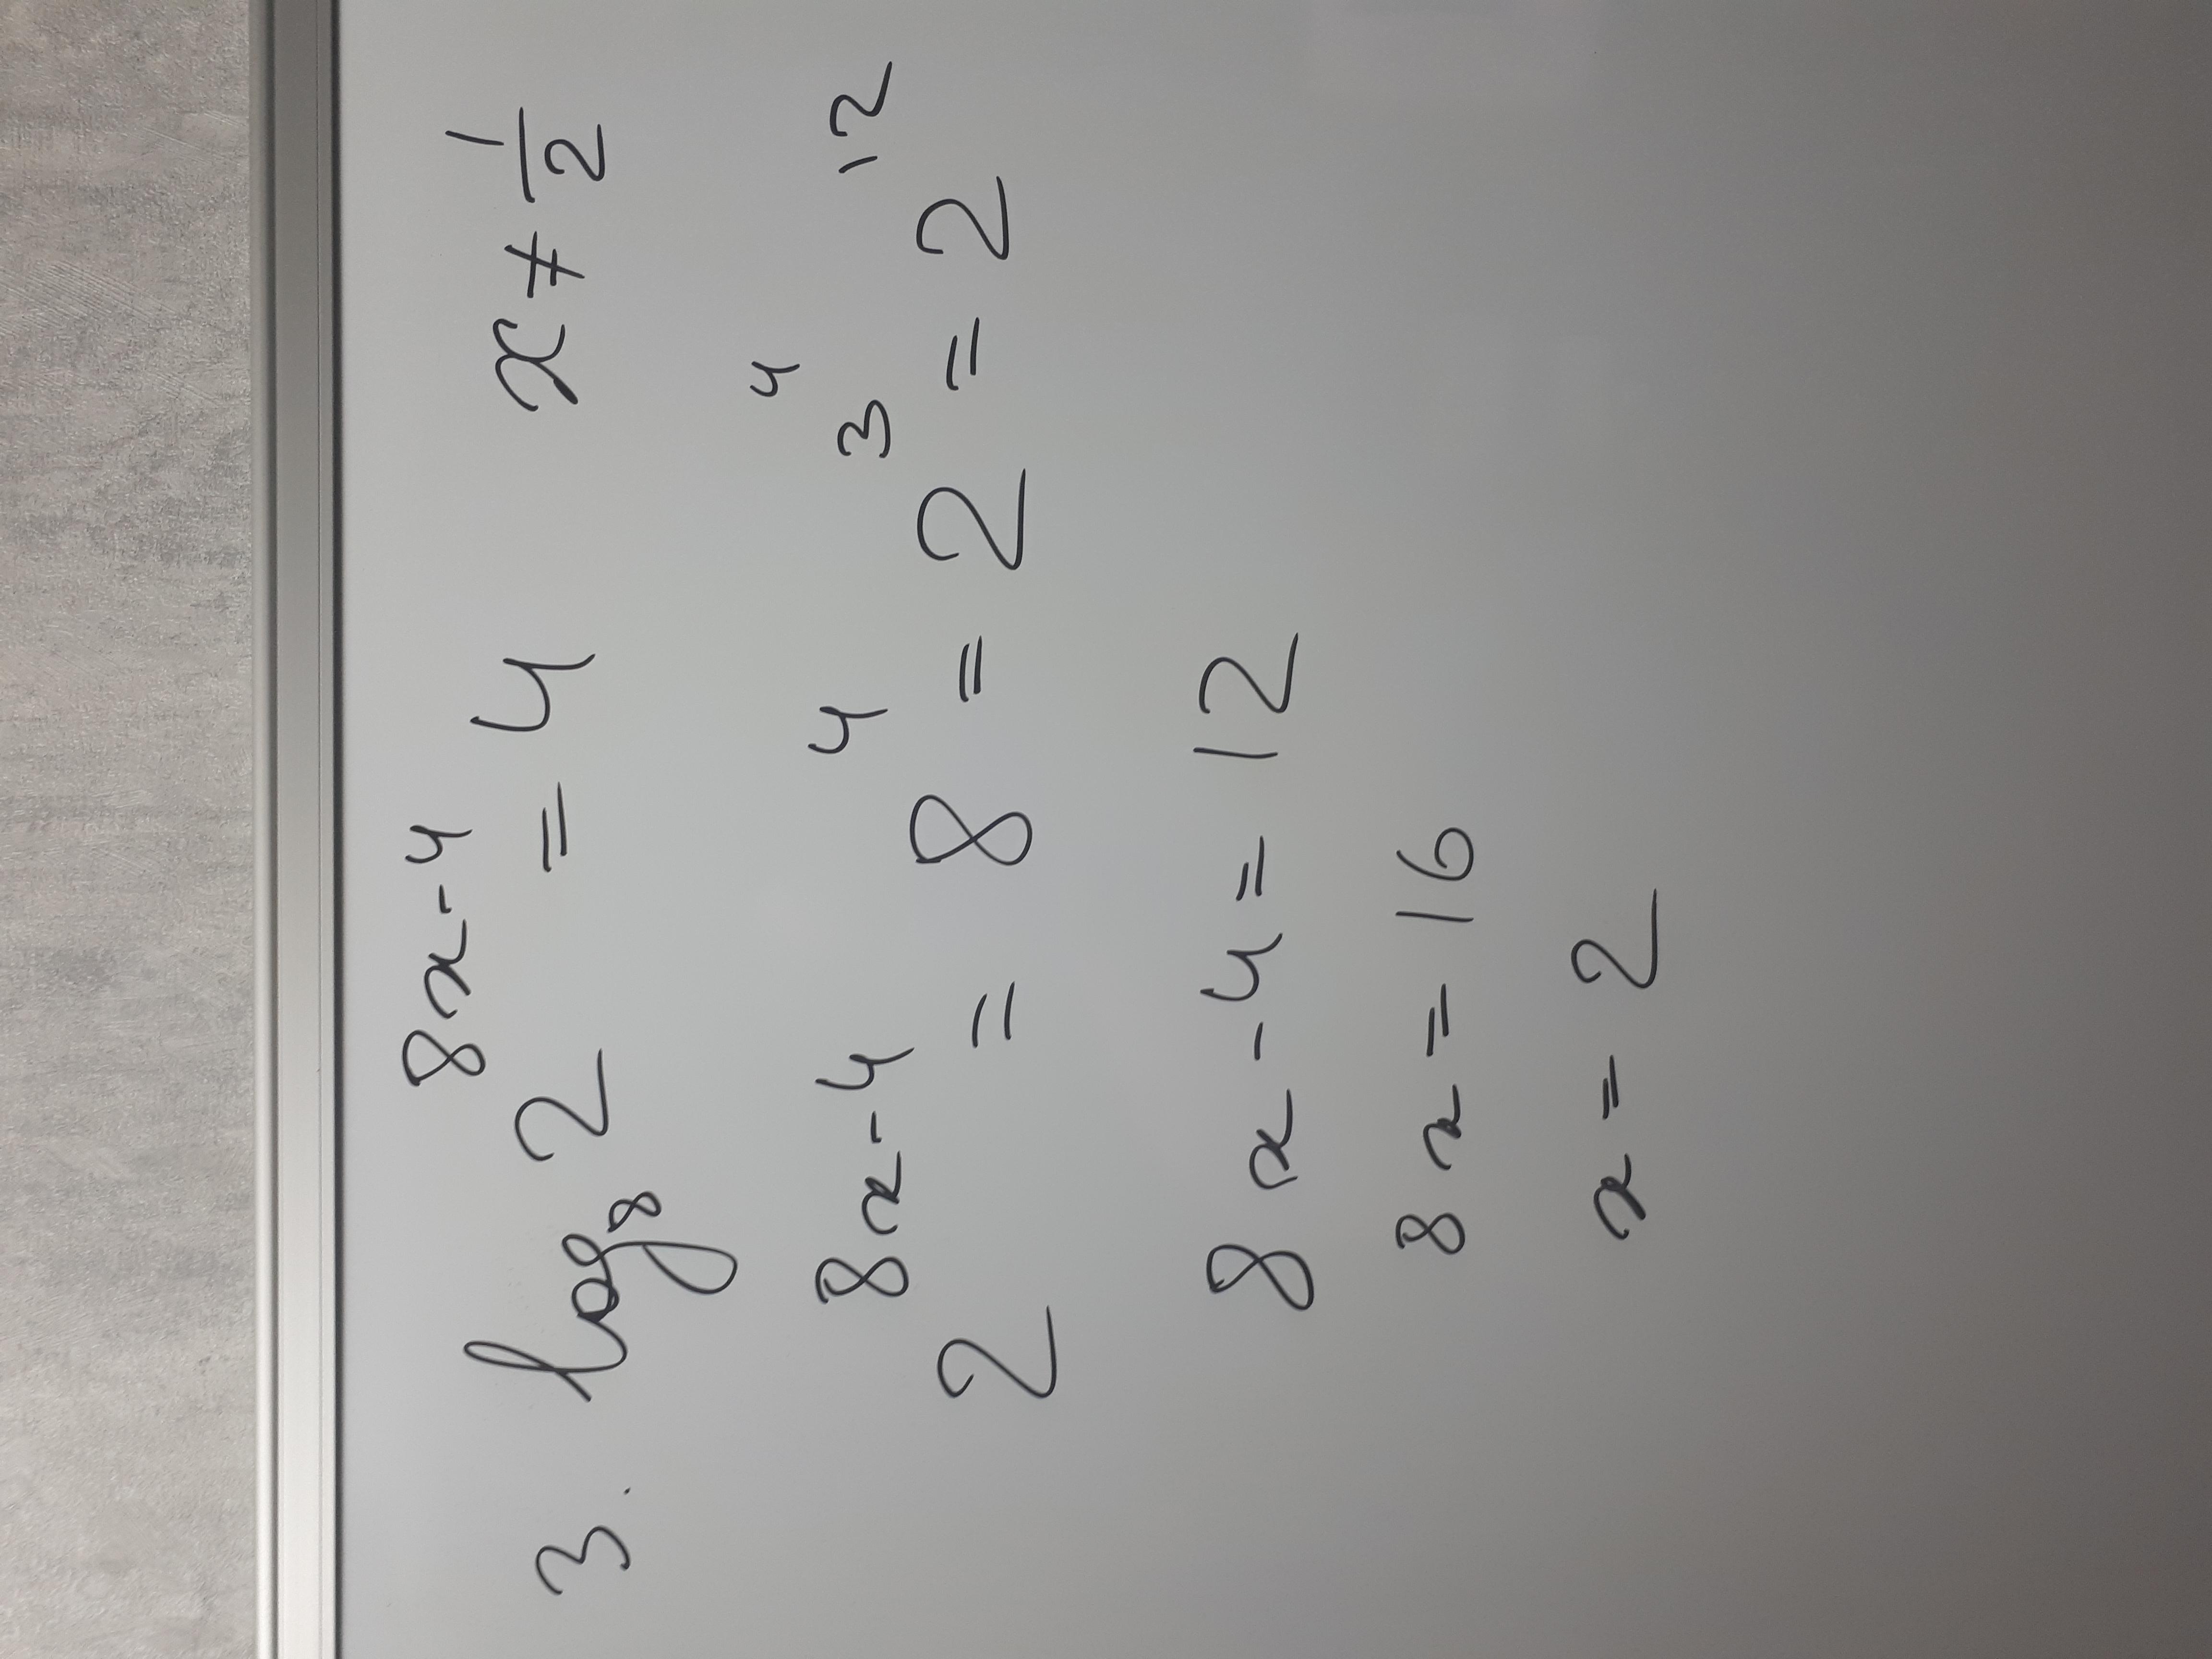 3. log₈ 2^(8x-4) = 4 x ≠ 1/2
2^(8x-4) = 8^4 = 2^3^4 = 2^12
8x - 4 = 12
8x = 16
x = 2